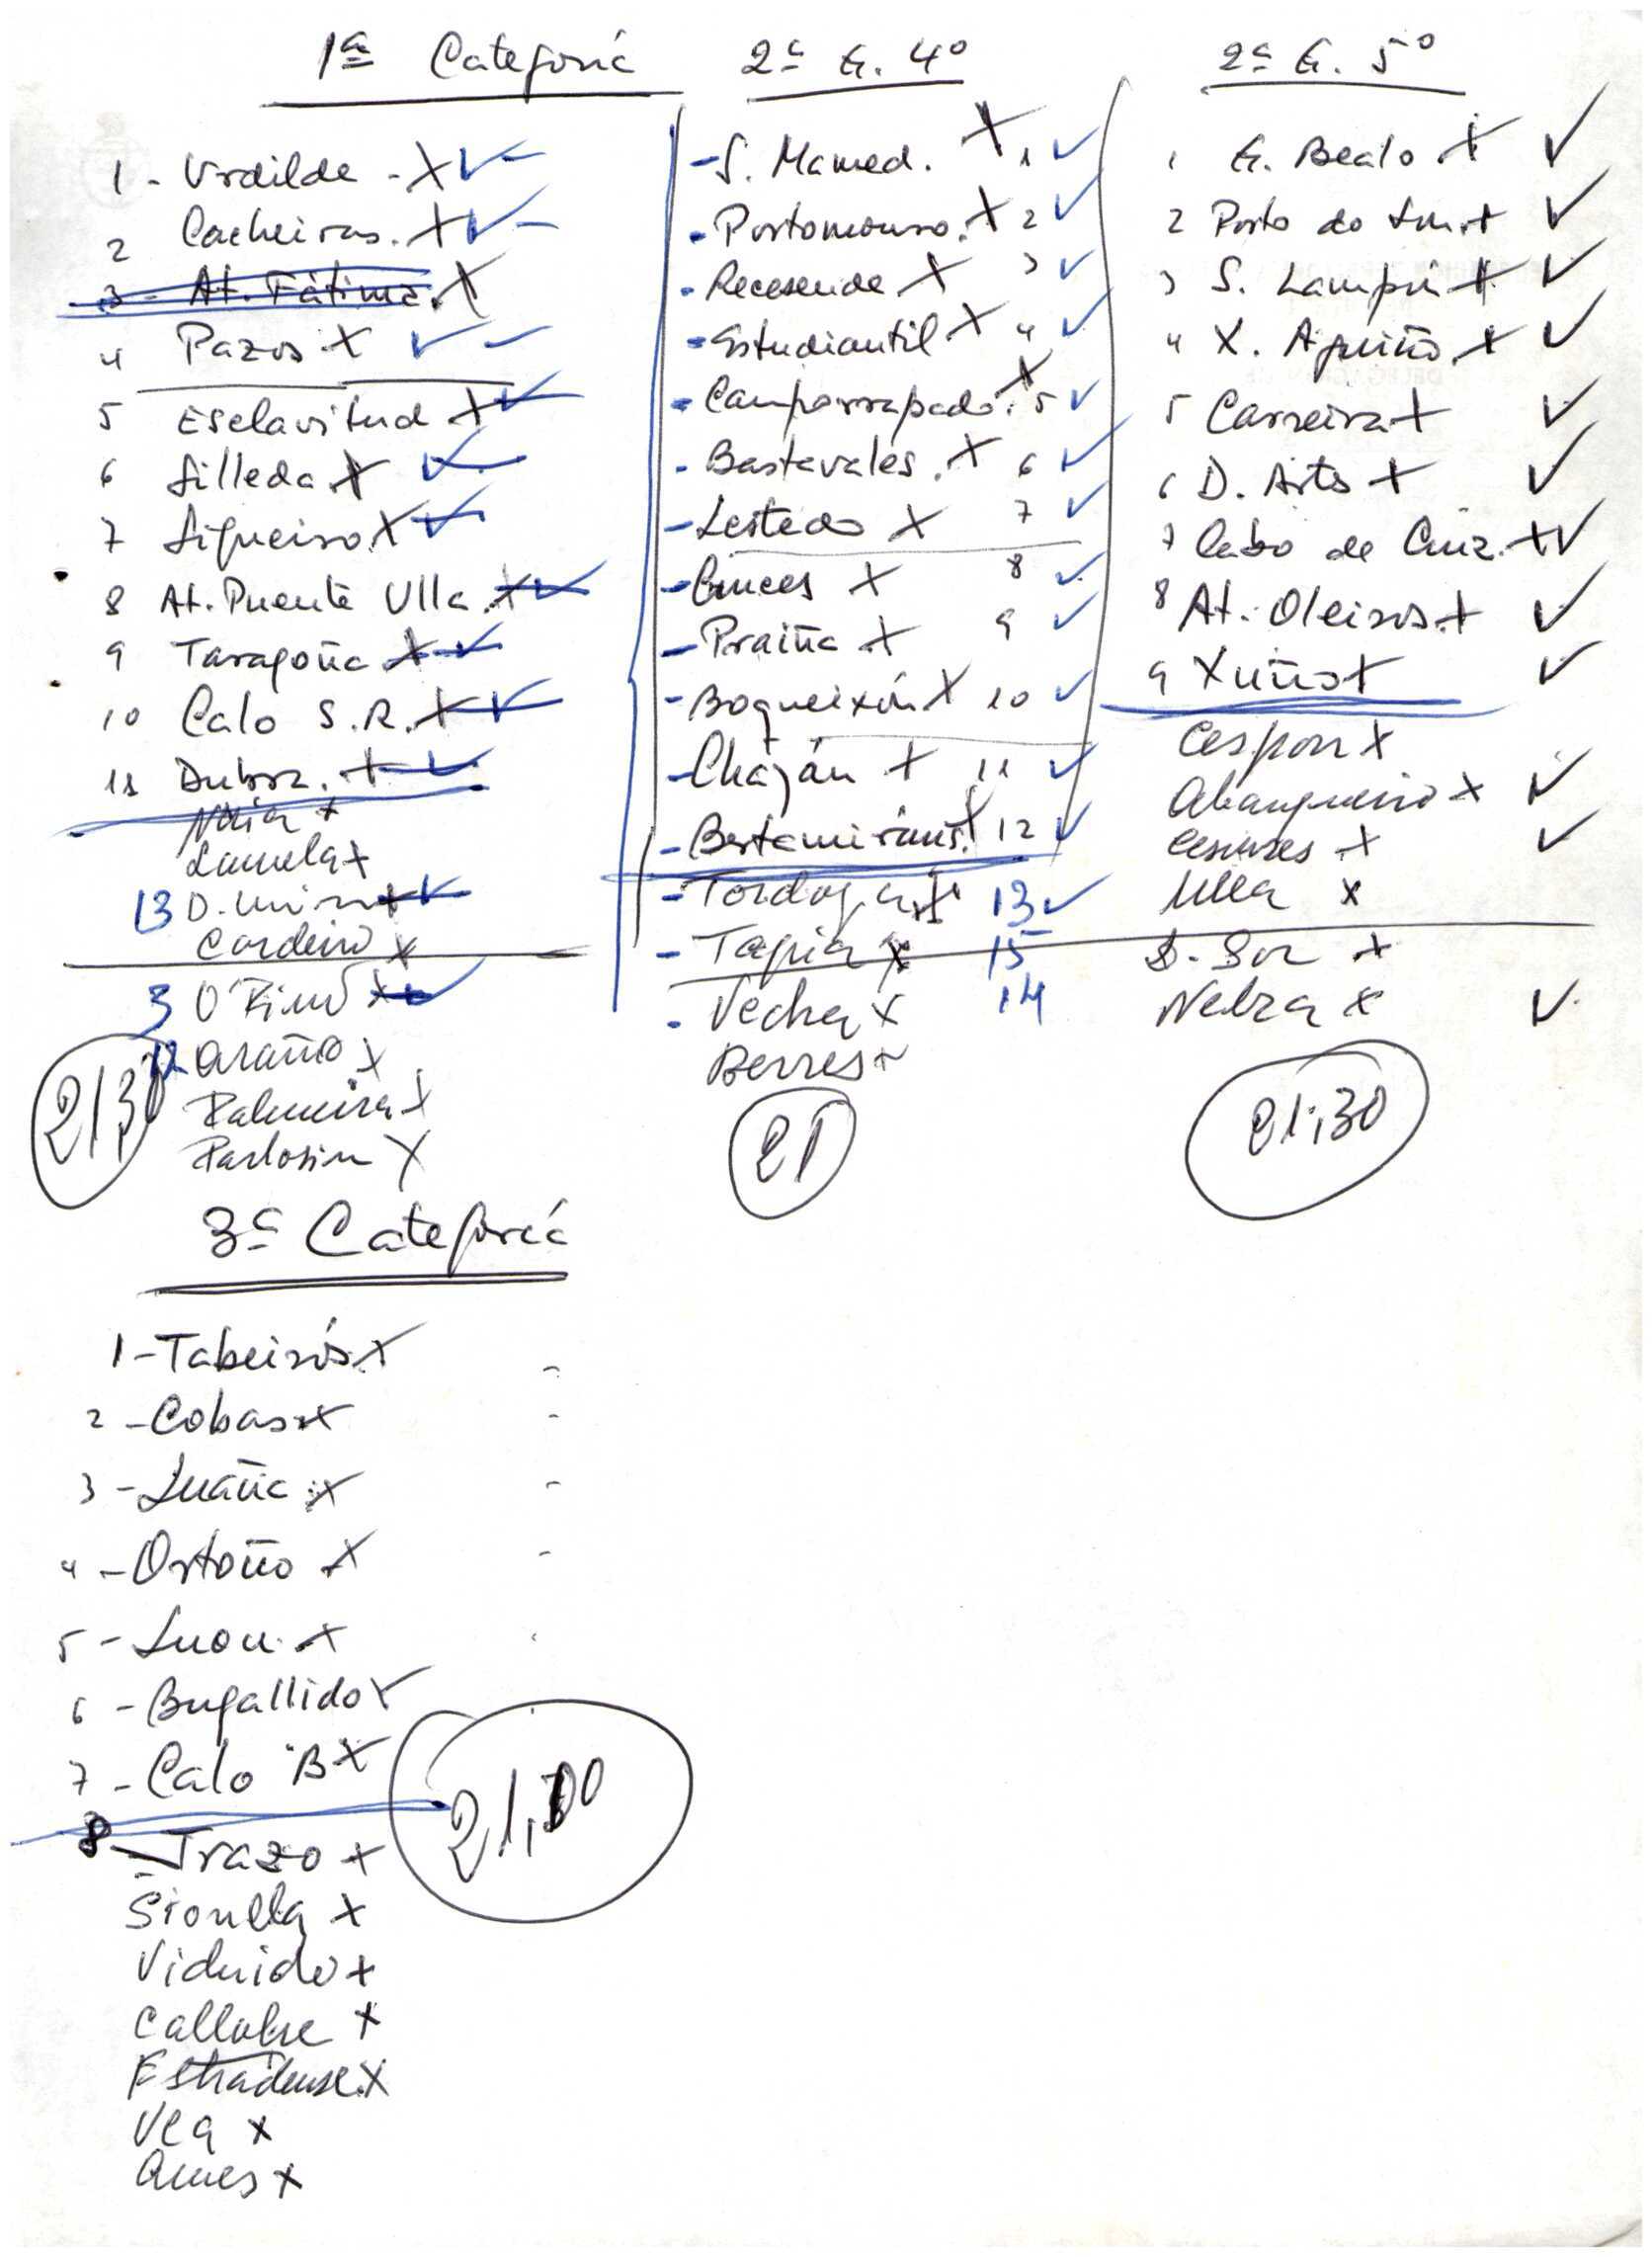 1ª Categoría
1 - Urdilde - X ✓ -
2 Cacheiras. X ✓ -
3 - At. Fátima. X
4 Pazos X ✓ -
5 Esclavitud X ✓
6 Silleda X ✓
7 Sigueiro X ✓
8 At. Puente Ulla. X ✓
9 Taragoña X ✓
10 Calo S.R. X ✓
11 Dubra. X ✓
Noia X
Lamela X
13 X ✓
Cordeiro X
3 O'Pino X ✓
12 Araño X
Palmeira X
X
2130
2ª G. 4º
- S. Mamed. X 1 ✓
- Portomouro. X 2 ✓
- Recesende X 3 ✓
- Estudiantil X 4 ✓
- Camporrapado. X 5 ✓
- Bastavales. X 6 ✓
- Lestedo X 7 ✓
- Cruces X 8 ✓
- Praiña X 9 ✓
- Boqueixón X 10 ✓
- Chayán X 11 ✓
- Bertamiráns. X 12 ✓
- Tordoya X 13 ✓
- Tapia X 15
- Vedra X 14
Berres X
21
2ª G. 5º
1 G. Bealo X ✓
2 Porto do Son X ✓
3 S. Lampón X ✓
4 X. Aguiño. X ✓
5 Carreira X ✓
6 D. Artes X ✓
7 Cabo de Cruz. X ✓
8 At. Oleiros. X ✓
9 Xuño X ✓
Cespon X
Abanqueiro X ✓
Cesures X ✓
Ulla X
S. Sar X
Nebra X ✓
21,30
3ª Categoría
1 - Tabeirós X -
2 - Cobas X -
3 - Luaña X -
4 - Ortoño X -
5 - Luou X
6 - Bugallido X
7 - Calo "B X
8 - Trazo X
Sionlla X
Viduido X
Callobre X
Estradense X
Vea X
Ames X
21,00